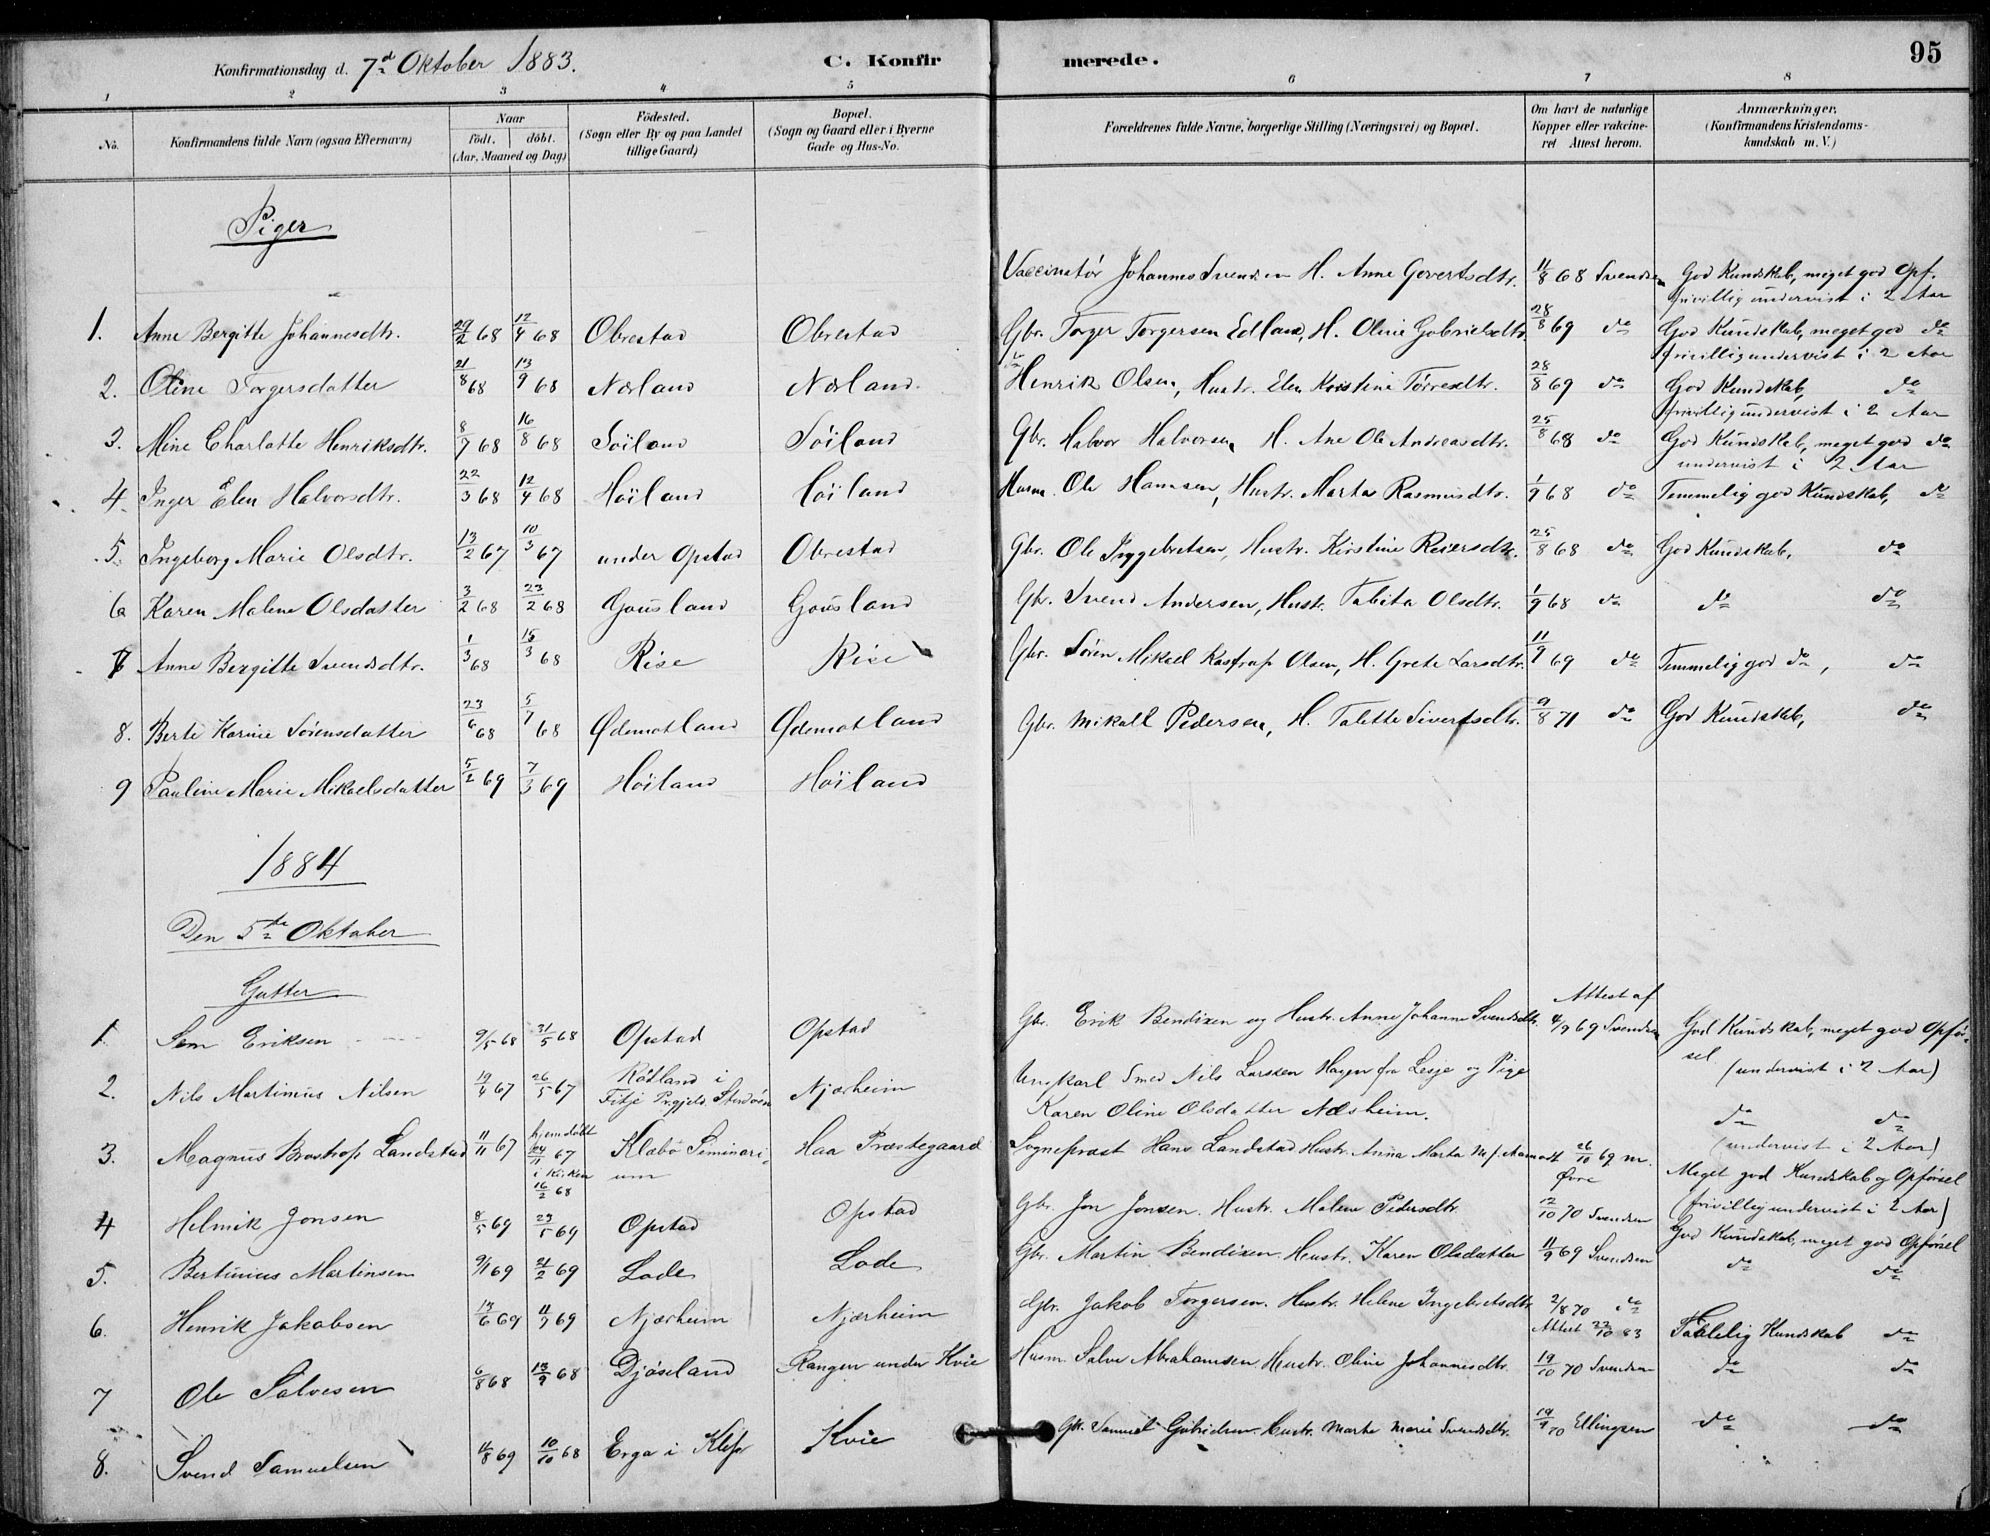 Konfirmationsdag d. 7d Oktober 1883. C. Konfirmerede. 95
1 2 3 4 5 6 7 8
No. Konfirmandens fulde Navn (ogsaa Efternavn) Naar født. døbt. (Aar, Maaned og Dag) Fødested. (Sogn eller By og paa Landet tillige Gaard) Bopæl. (Sogn og Gaard eller i Byerne Gade og Hus-No. Forældrenes fulde Navne, borgerlige Stilling (Næringsvei) og Bopæl. Om havt de naturlige Kopper eller vakcineret Attest herom. Anmærkninger. (Konfirmandens Kristendomskundskab m. V.)
Piger
1. Anne Bergitte Johannesdtr. 29/2 68 12/4 68 Obrestad Obrestad Vaccinatør Johannes Svendsen H. Anne Govertsdtr. 11/8 68 Svendsen God Kundskab, meget god Opf. frivillig undervist i 2 Aar
2. Oline Torgersdatter 21/8 68 13/9 68 Nærland Nærland Gbr. Torger Torgersen Edland, H. Oline Gabrielsdtr. 28/8 69 do God Kundskab, meget god do frivillig undervist i 2 Aar
3. Mine Charlotte Henriksdtr. 8/7 68 16/8 68 Söiland Söiland do Henrik Olsen, Hustr. Elen Kristine Tørresdtr. 28/8 69 do God Kundskab, do frivillig undervist i 2 Aar
4. Inger Elen Halvorsdtr. 22/3 68 12/4 68 Höiland Höiland Gbr. Halvor Halvorsen, H. Ane Ole Andreasdtr. 25/8 68 do God Kundskab, meget god do undervist i 2 Aar
5. Ingeborg Marie Olsdtr. 13/2 67 10/3 67 under Opstad Obrestad Husm. Ole Hansen, Hustr. Marta Rasmusdtr. 1/9 68 do Temmelig god Kundskab, do
6 Karen Malene Olsdatter 3/2 68 23/2 68 Gousland Gousland Gbr. Ole Inggebretsen, Hustr. Kirstine Reiersdtr. 25/8 68 do God Kundskab, do
7 Anne Bergitte Svendsdtr. 1/3 68 15/3 68 Rise Rise Gbr. Svend Andersen, Hustr. Tabita Olsdtr. 1/9 68 do do do
8. Berte Karine Sörensdatter 23/6 68 5/7 68 Ødemotland Ødemotland Gbr. Sören Mikael Kastrup Olsen, H. Grete Larsdtr. 11/9 69 do Temmelig god do, do
9 Pauline Marie Mikaelsdatter 5/2 69 7/3 69 Höiland Höiland Gbr. Mikall Pedersen, H. Talette Sivertsdtr. 9/8 71 do God Kundskab, do
1884
Den 5te Oktober
Gutter
1 Sem Eriksen 9/5 68 31/5 68 Opstad Opstad Gbr. Erik Bendixen og Hustr. Anne Johanne Svendsdtr. Attest af 4/9 69 Svendsen God Kundskab, meget god Opførsel (undervist i 2 Aar)
2. Nils Martinius Nilsen 19/4 67 26/5 67 Rötland i Fitje Prgjeld. Njærheim Ungkarl Smed Nils Larsen Hagen fra Lesje og Pige Karen Oline Olsdatter Næsheim. do do (undervist i 2 Aar)
3. Magnus Brostrup Landstad 11/11 67 hjemdöbt 24/11 67 i Kirken 16/2 68 Klæbö Seminarium Haa Præstegaard Sogneprest Hans Landstad Hustr. Anna Marta M. f. Aamodt 26/10 69 m. Øvre Meget god Kundskab og Opførsel (frivillig undervist i 2 Aar)
4 Helmik Jonsen 8/5 69 23/5 69 Opstad Opstad Gbr. Jon Jonsen. Hustr. Malene Pedersdtr. 12/10 70 Svendsen God Kundskab, meget god Opførsel
5. Bertinius Martinsen 9/1 69 21/2 69 Lode Lode Gbr. Martin Bendixen. Hustr. Karen Olsdatter 11/9 69 Svendsen do do
6. Henrik Jakobsen 13/6 69 11/7 69 Njærheim Njærheim Gbr. Jakob Torgersen. Hustr. Helene Ingebretsdtr. 2/8 70 do Attest 22/10 83 Taalelig Kundskab do
7 Ole Salvesen 6/8 68 13/9 68 Djösland Rangen under Kvie Husm. Salve Abrahamsen. Hustr. Oline Johannesdtr. 19/10 70 Svendsen do do
8. Svend Samuelsen 11/8 69 10/10 68 Erga i Klep Kvie Gbr. Samuel Gabrielsen. Hustr. Marte Marie Svendsdtr. 19/9 70 Ellingsen do do